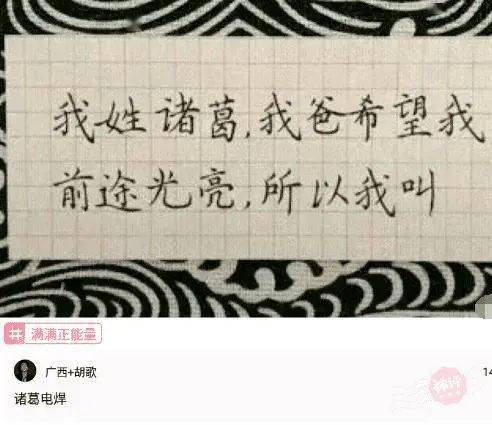 我姓诸葛,我爸希望我
前途光亮,所以我叫
#满满正能量
广西+胡歌
14
诸葛电焊
神评